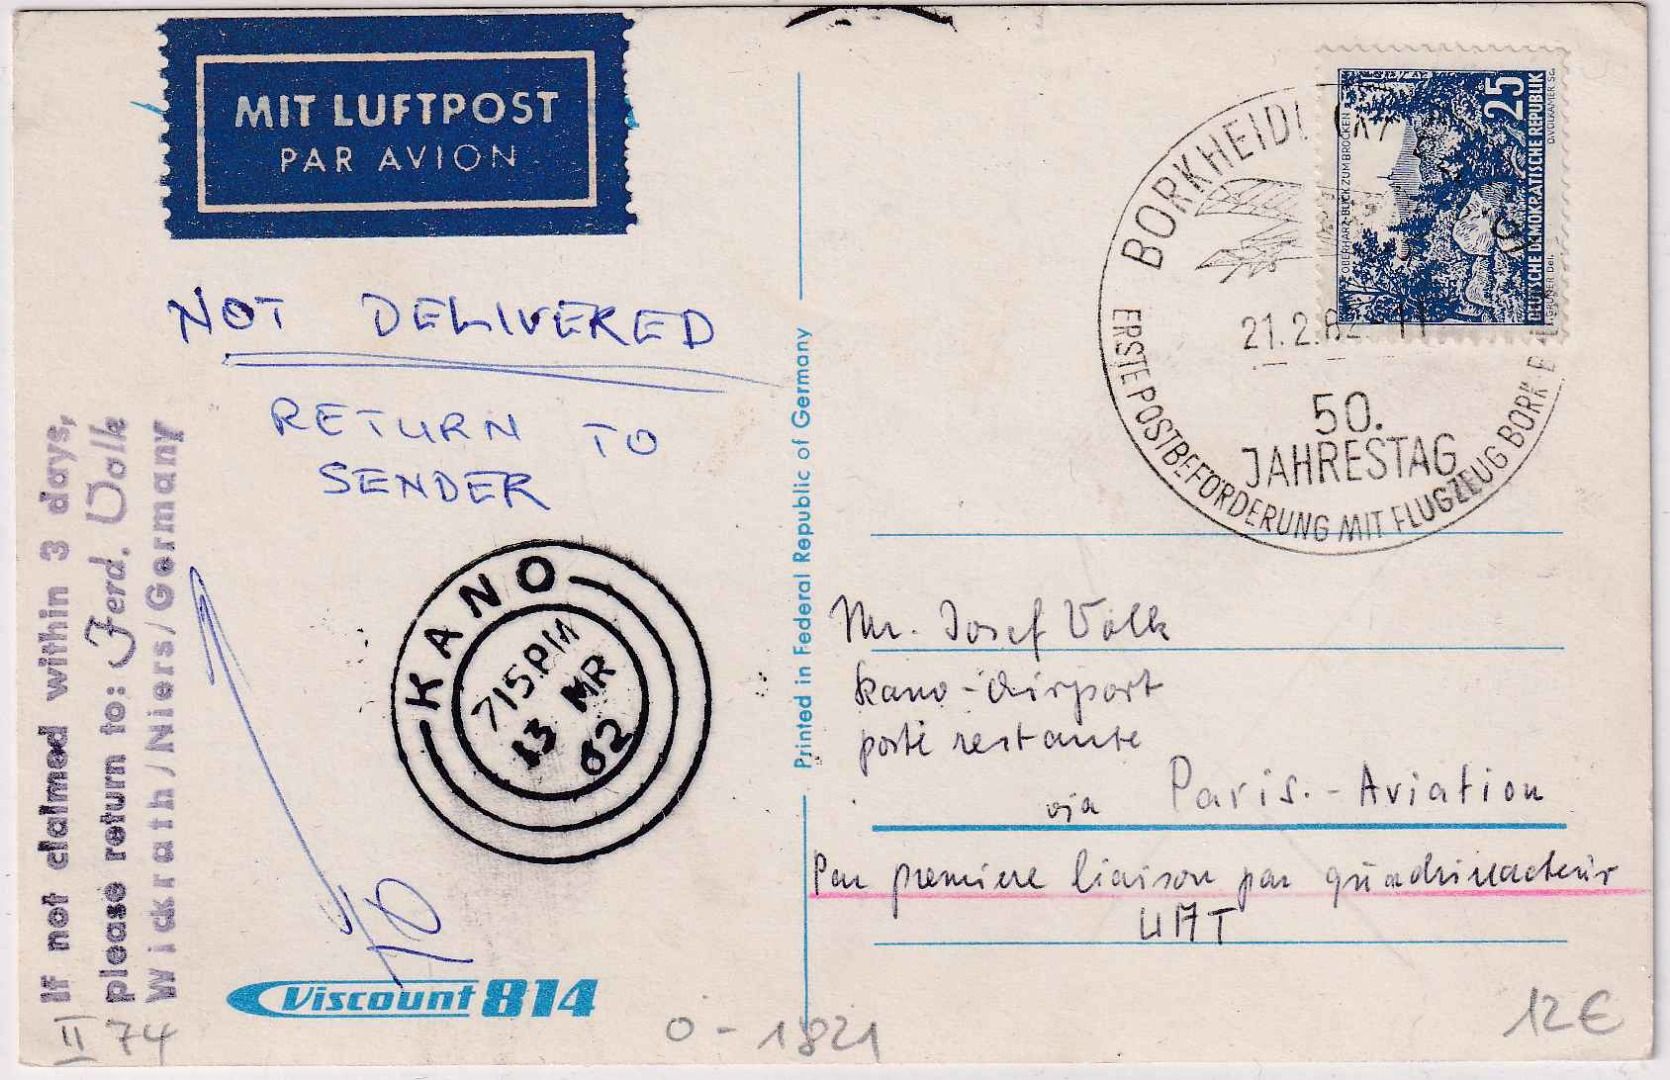 MIT LUFTPOST
PAR AVION
NOT DELIVERED
RETURN TO
SENDER
If not claimed within 3 days,
please return to: Ferd. Volk
Wickrath/Niers/Germany
KANO
715 PM
13 MR
62
Viscount 814
II 74
0-1821
Printed in Federal Republic of Germany
OBERHARZ · BLICK ZUM BROCKEN
25
DEUTSCHE DEMOKRATISCHE REPUBLIK
BORKHEIDE
21.2.62-11
50.
JAHRESTAG
ERSTE POSTBEFÖRDERUNG MIT FLUGZEUG BORK
Mr. Josef Volk
Kano-Airport
poste restante
via Paris.-Aviation
Par premiere liaison par quadrimoteur
UAT
12€